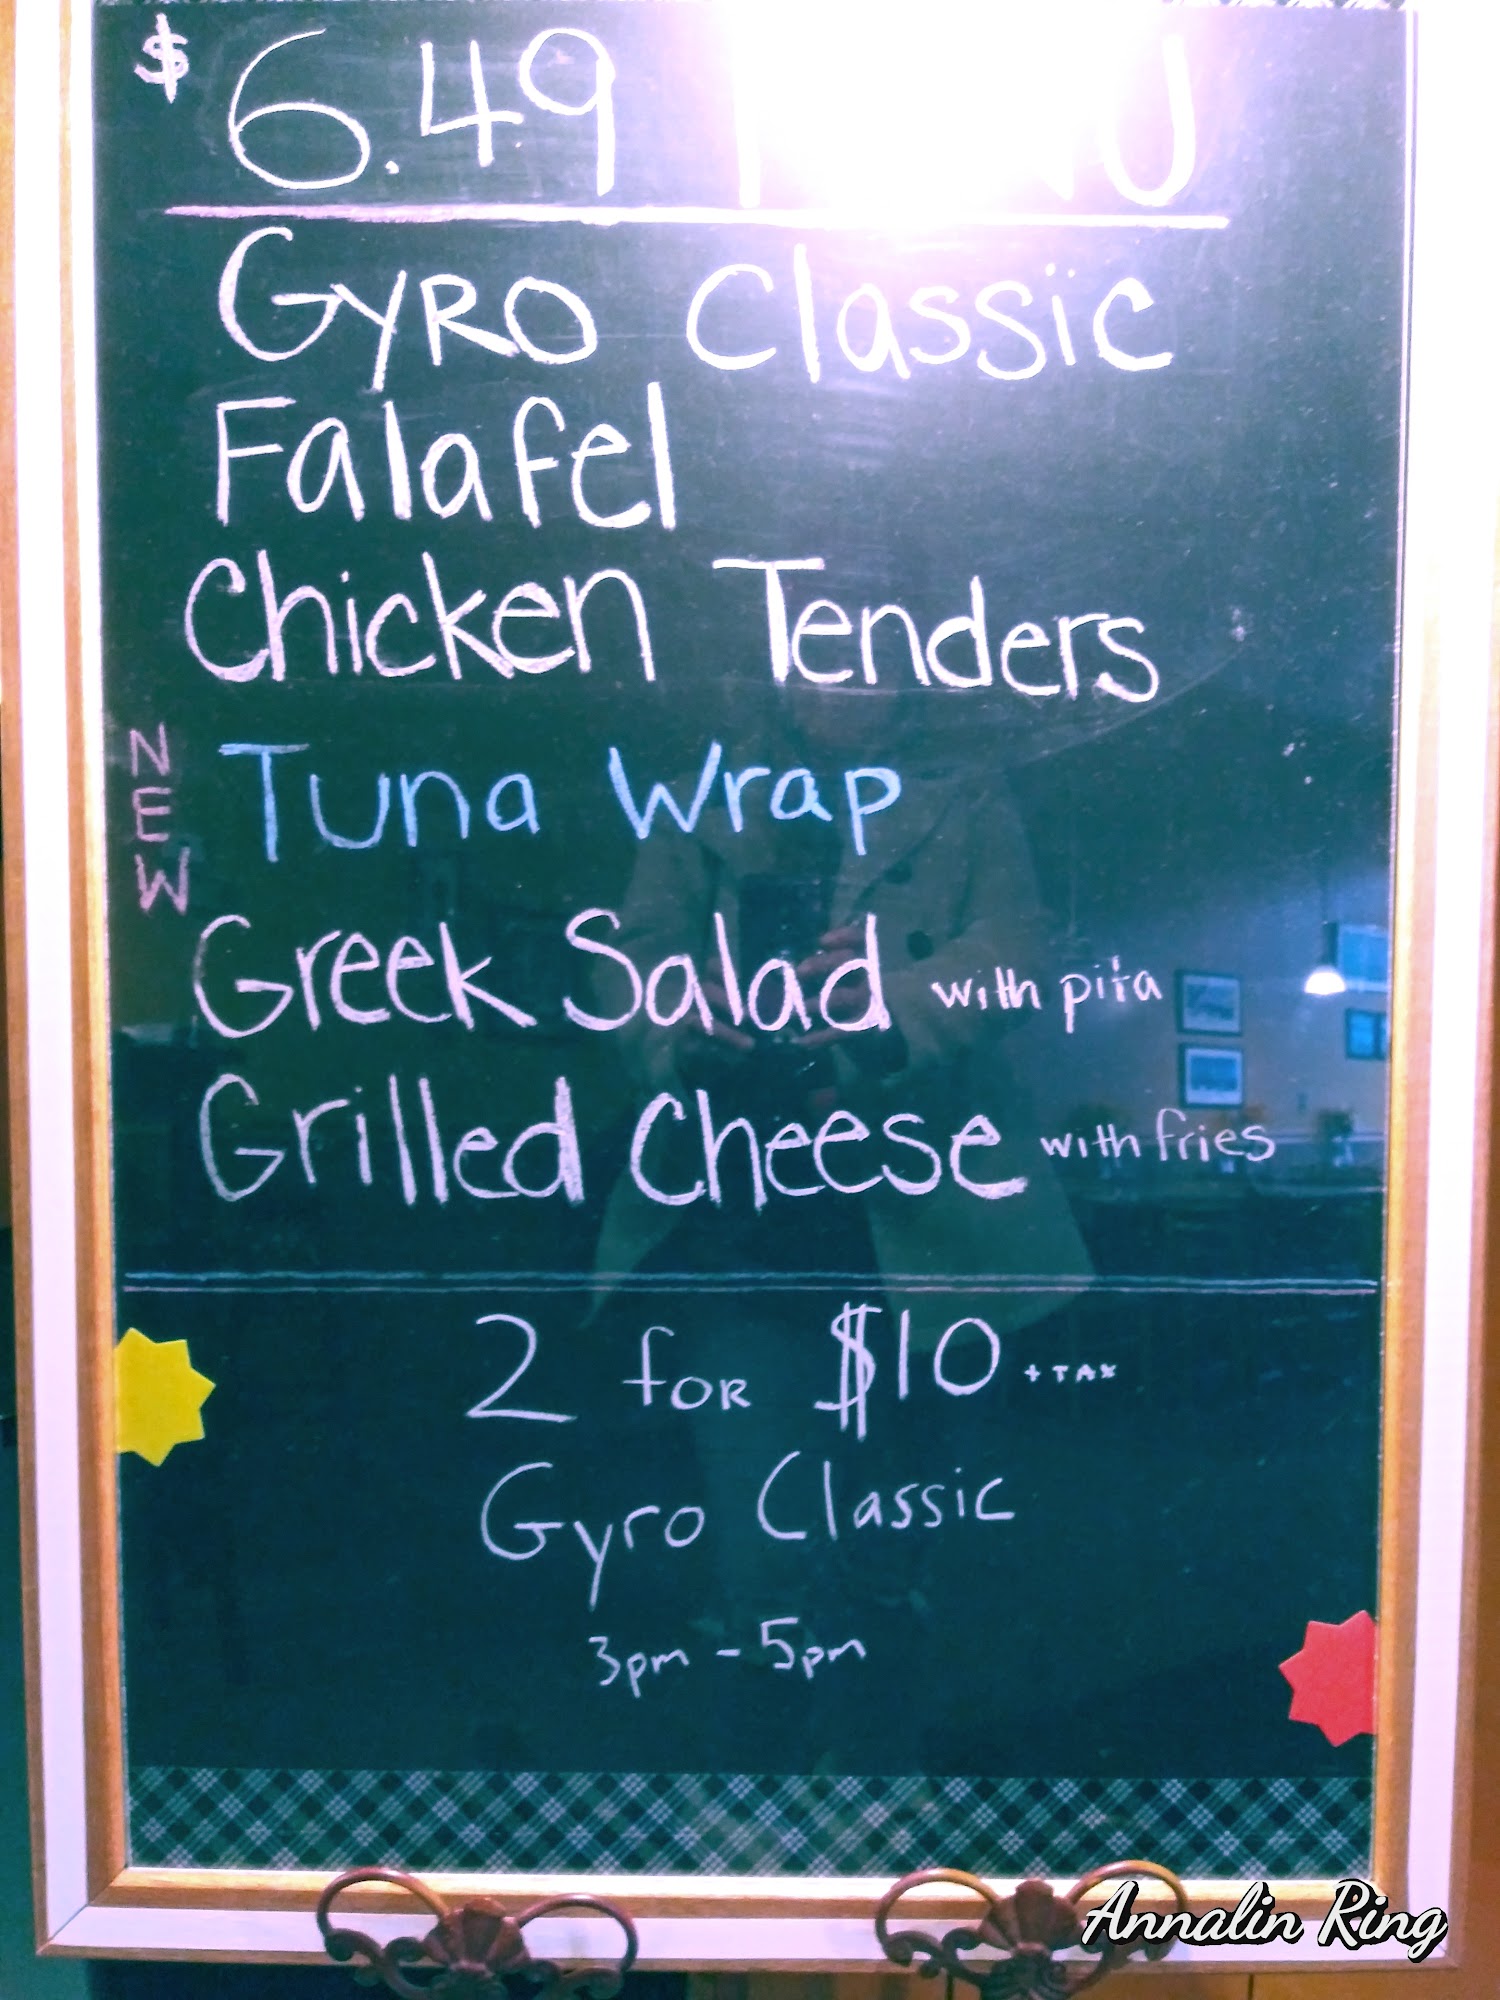 $6.49
Gyro Classic
Falafel
Chicken Tenders
NEW Tuna Wrap
Greek Salad with pita
Grilled Cheese with fries
2 for $10 + TAX
Gyro Classic
3pm - 5pm
Annalin Ring